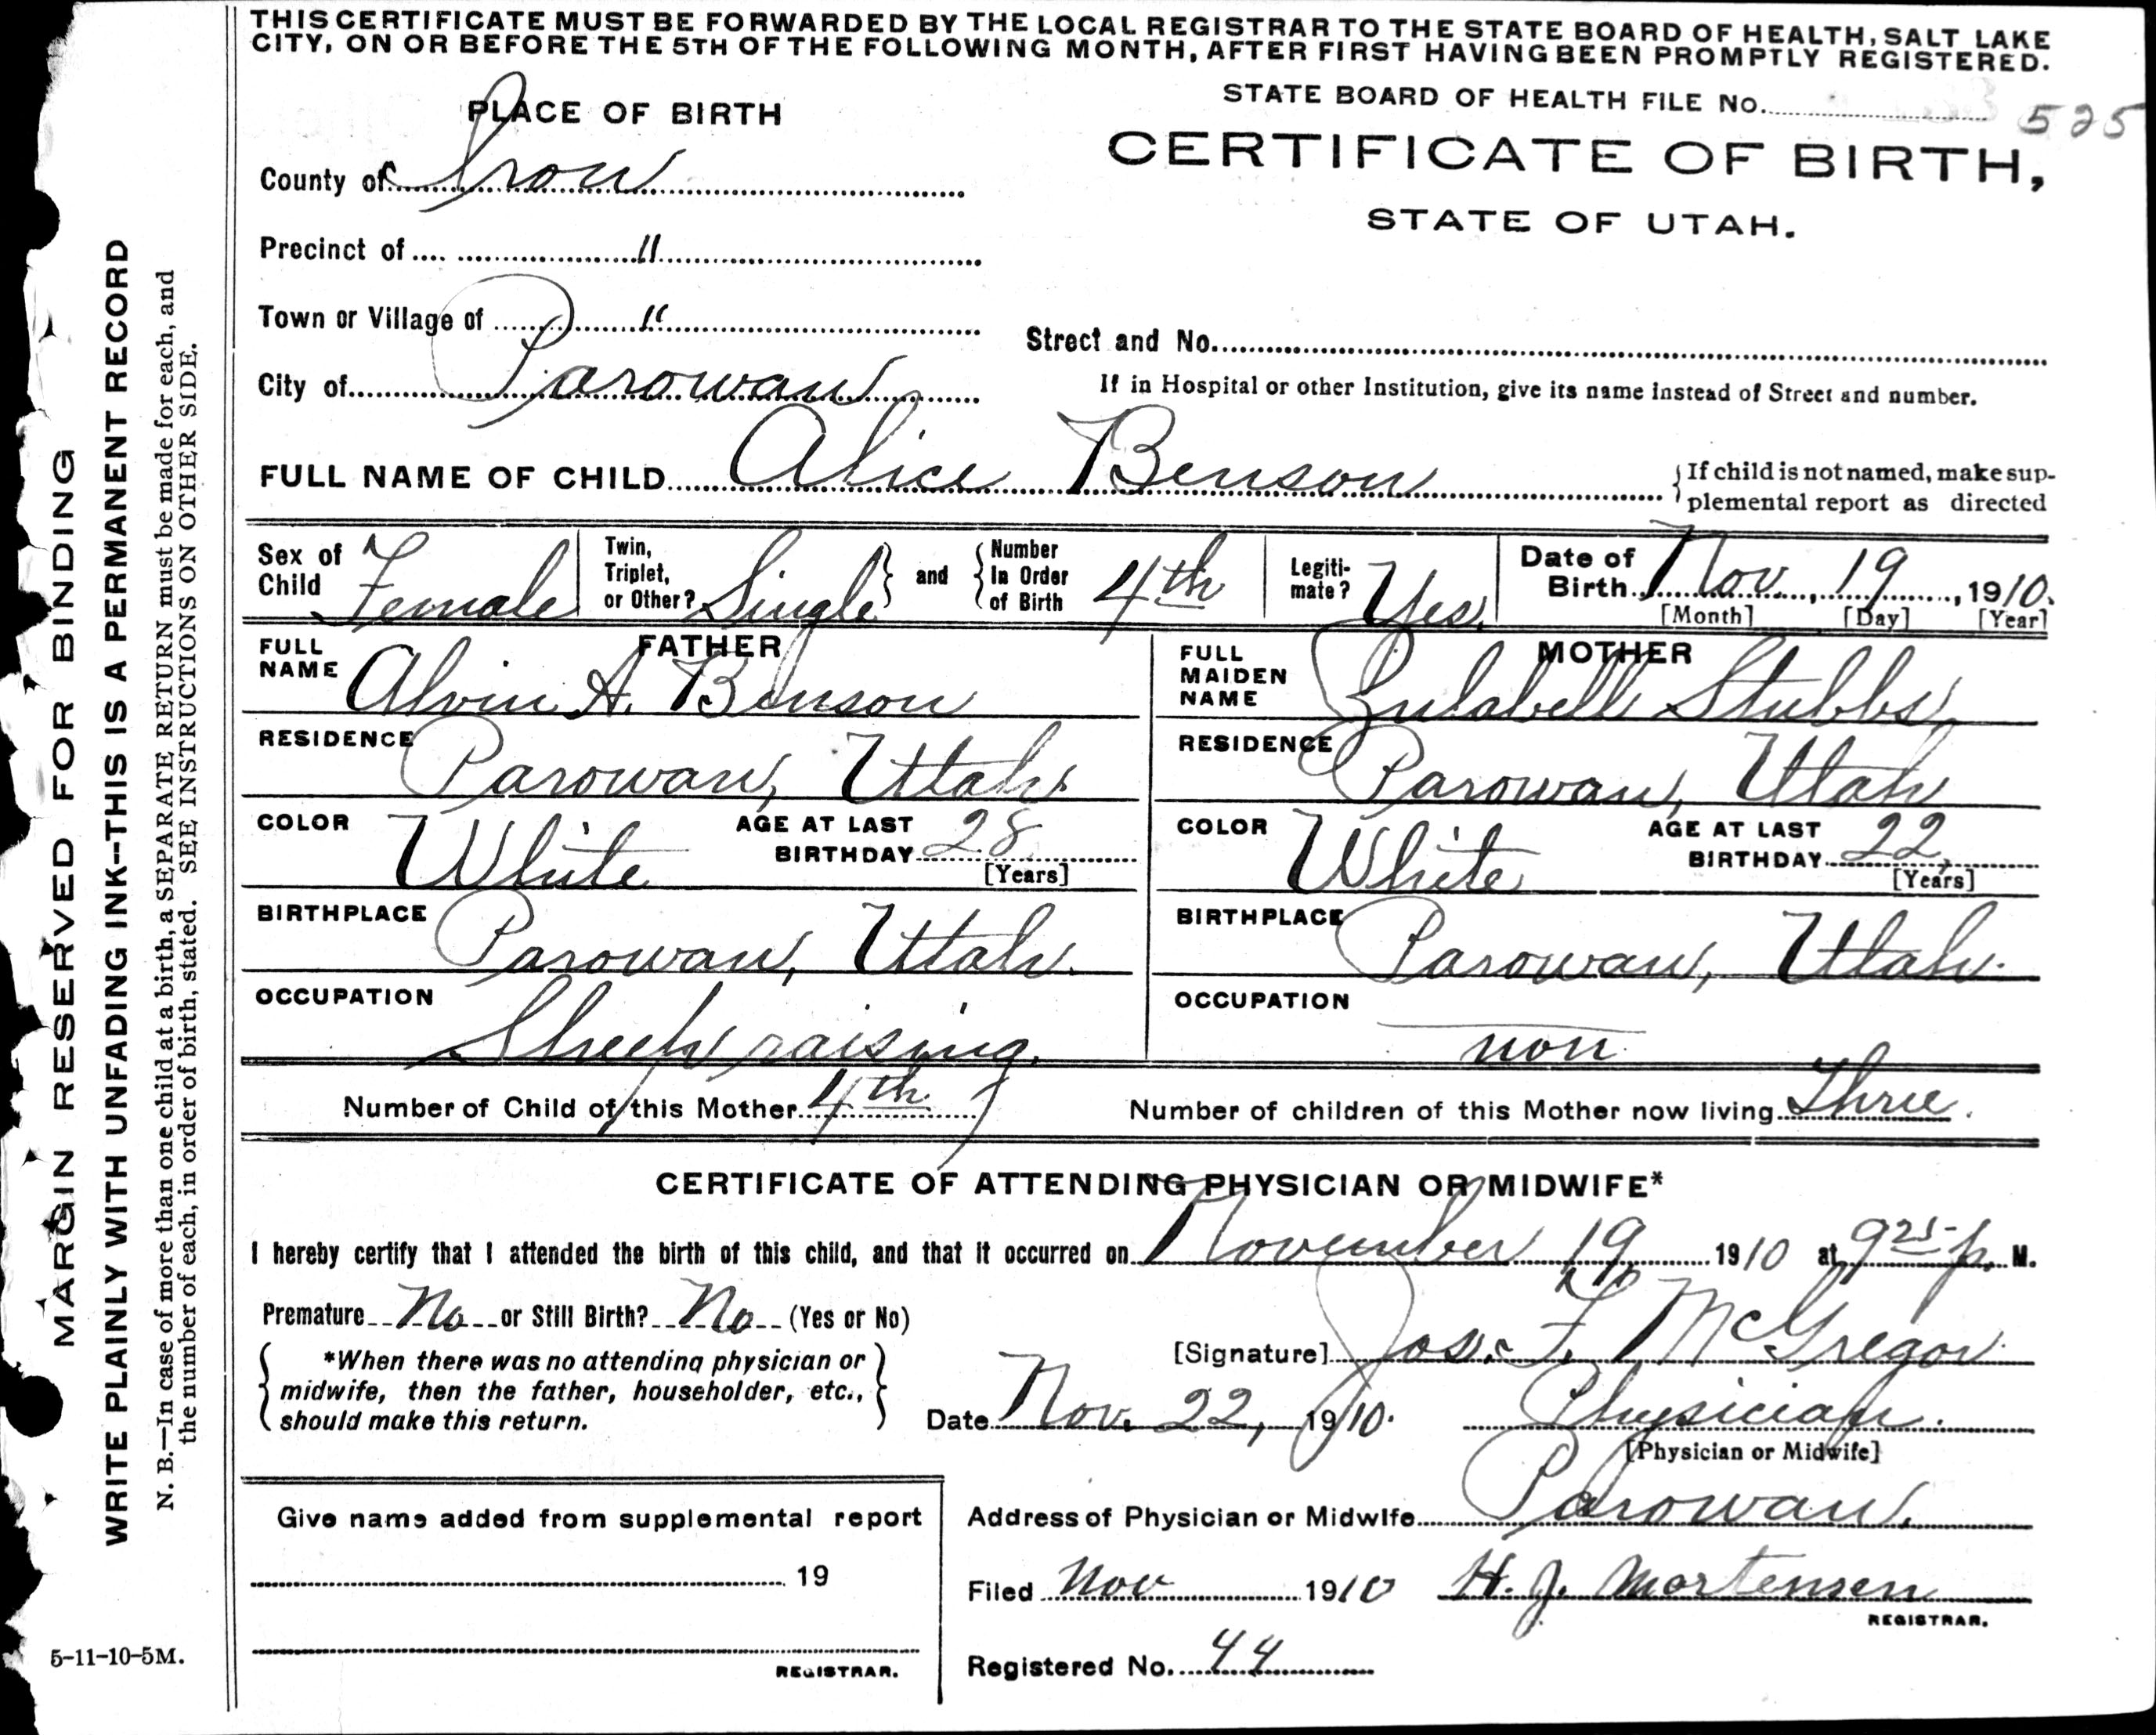 THIS CERTIFICATE MUST BE FORWARDED BY THE LOCAL REGISTRAR TO THE STATE BOARD OF HEALTH, SALT LAKE
CITY, ON OR BEFORE THE 5TH OF THE FOLLOWING MONTH, AFTER FIRST HAVING BEEN PROMPTLY REGISTERED.
STATE BOARD OF HEALTH FILE No. 525
CERTIFICATE OF BIRTH,
STATE OF UTAH.
PLACE OF BIRTH
County of Iron
Precinct of "
Town or Village of "
City of Parowan
Street and No.
If in Hospital or other Institution, give its name instead of Street and number.
FULL NAME OF CHILD Alice Benson
{If child is not named, make sup-
plemental report as directed
Sex of Child Female
Twin, Triplet, or Other? Single} and {Number In Order of Birth 4th
Legiti-mate? Yes.
Date of Birth Nov., 19, 1910.
[Month] [Day] [Year]
FATHER
FULL NAME Alvin A. Benson
RESIDENCE Parowan, Utah.
COLOR White AGE AT LAST BIRTHDAY 28
[Years]
BIRTHPLACE Parowan, Utah.
OCCUPATION Sheep raising.
MOTHER
FULL MAIDEN NAME Zulabell Stubbs
RESIDENCE Parowan, Utah
COLOR White AGE AT LAST BIRTHDAY 22
[Years]
BIRTHPLACE Parowan, Utah.
OCCUPATION non
Number of Child of this Mother 4th
Number of children of this Mother now living Three.
CERTIFICATE OF ATTENDING PHYSICIAN OR MIDWIFE*
I hereby certify that I attended the birth of this child, and that it occurred on November 19 1910 at 9 25 p. M.
Premature No or Still Birth? No (Yes or No)
{*When there was no attending physician or
midwife, then the father, householder, etc.,
should make this return.}
[Signature] Jos. F. McGregor
Date Nov. 22, 1910. Physician.
[Physician or Midwife]
Address of Physician or Midwife Parowan.
Filed Nov 1910 H. J. Mortensen
REGISTRAR.
Registered No. 44
Give name added from supplemental report
19
REGISTRAR.
MARGIN RESERVED FOR BINDING
WRITE PLAINLY WITH UNFADING INK--THIS IS A PERMANENT RECORD
N. B.—In case of more than one child at a birth, a SEPARATE RETURN must be made for each, and
the number of each, in order of birth, stated. SEE INSTRUCTIONS ON OTHER SIDE.
5-11-10-5M.